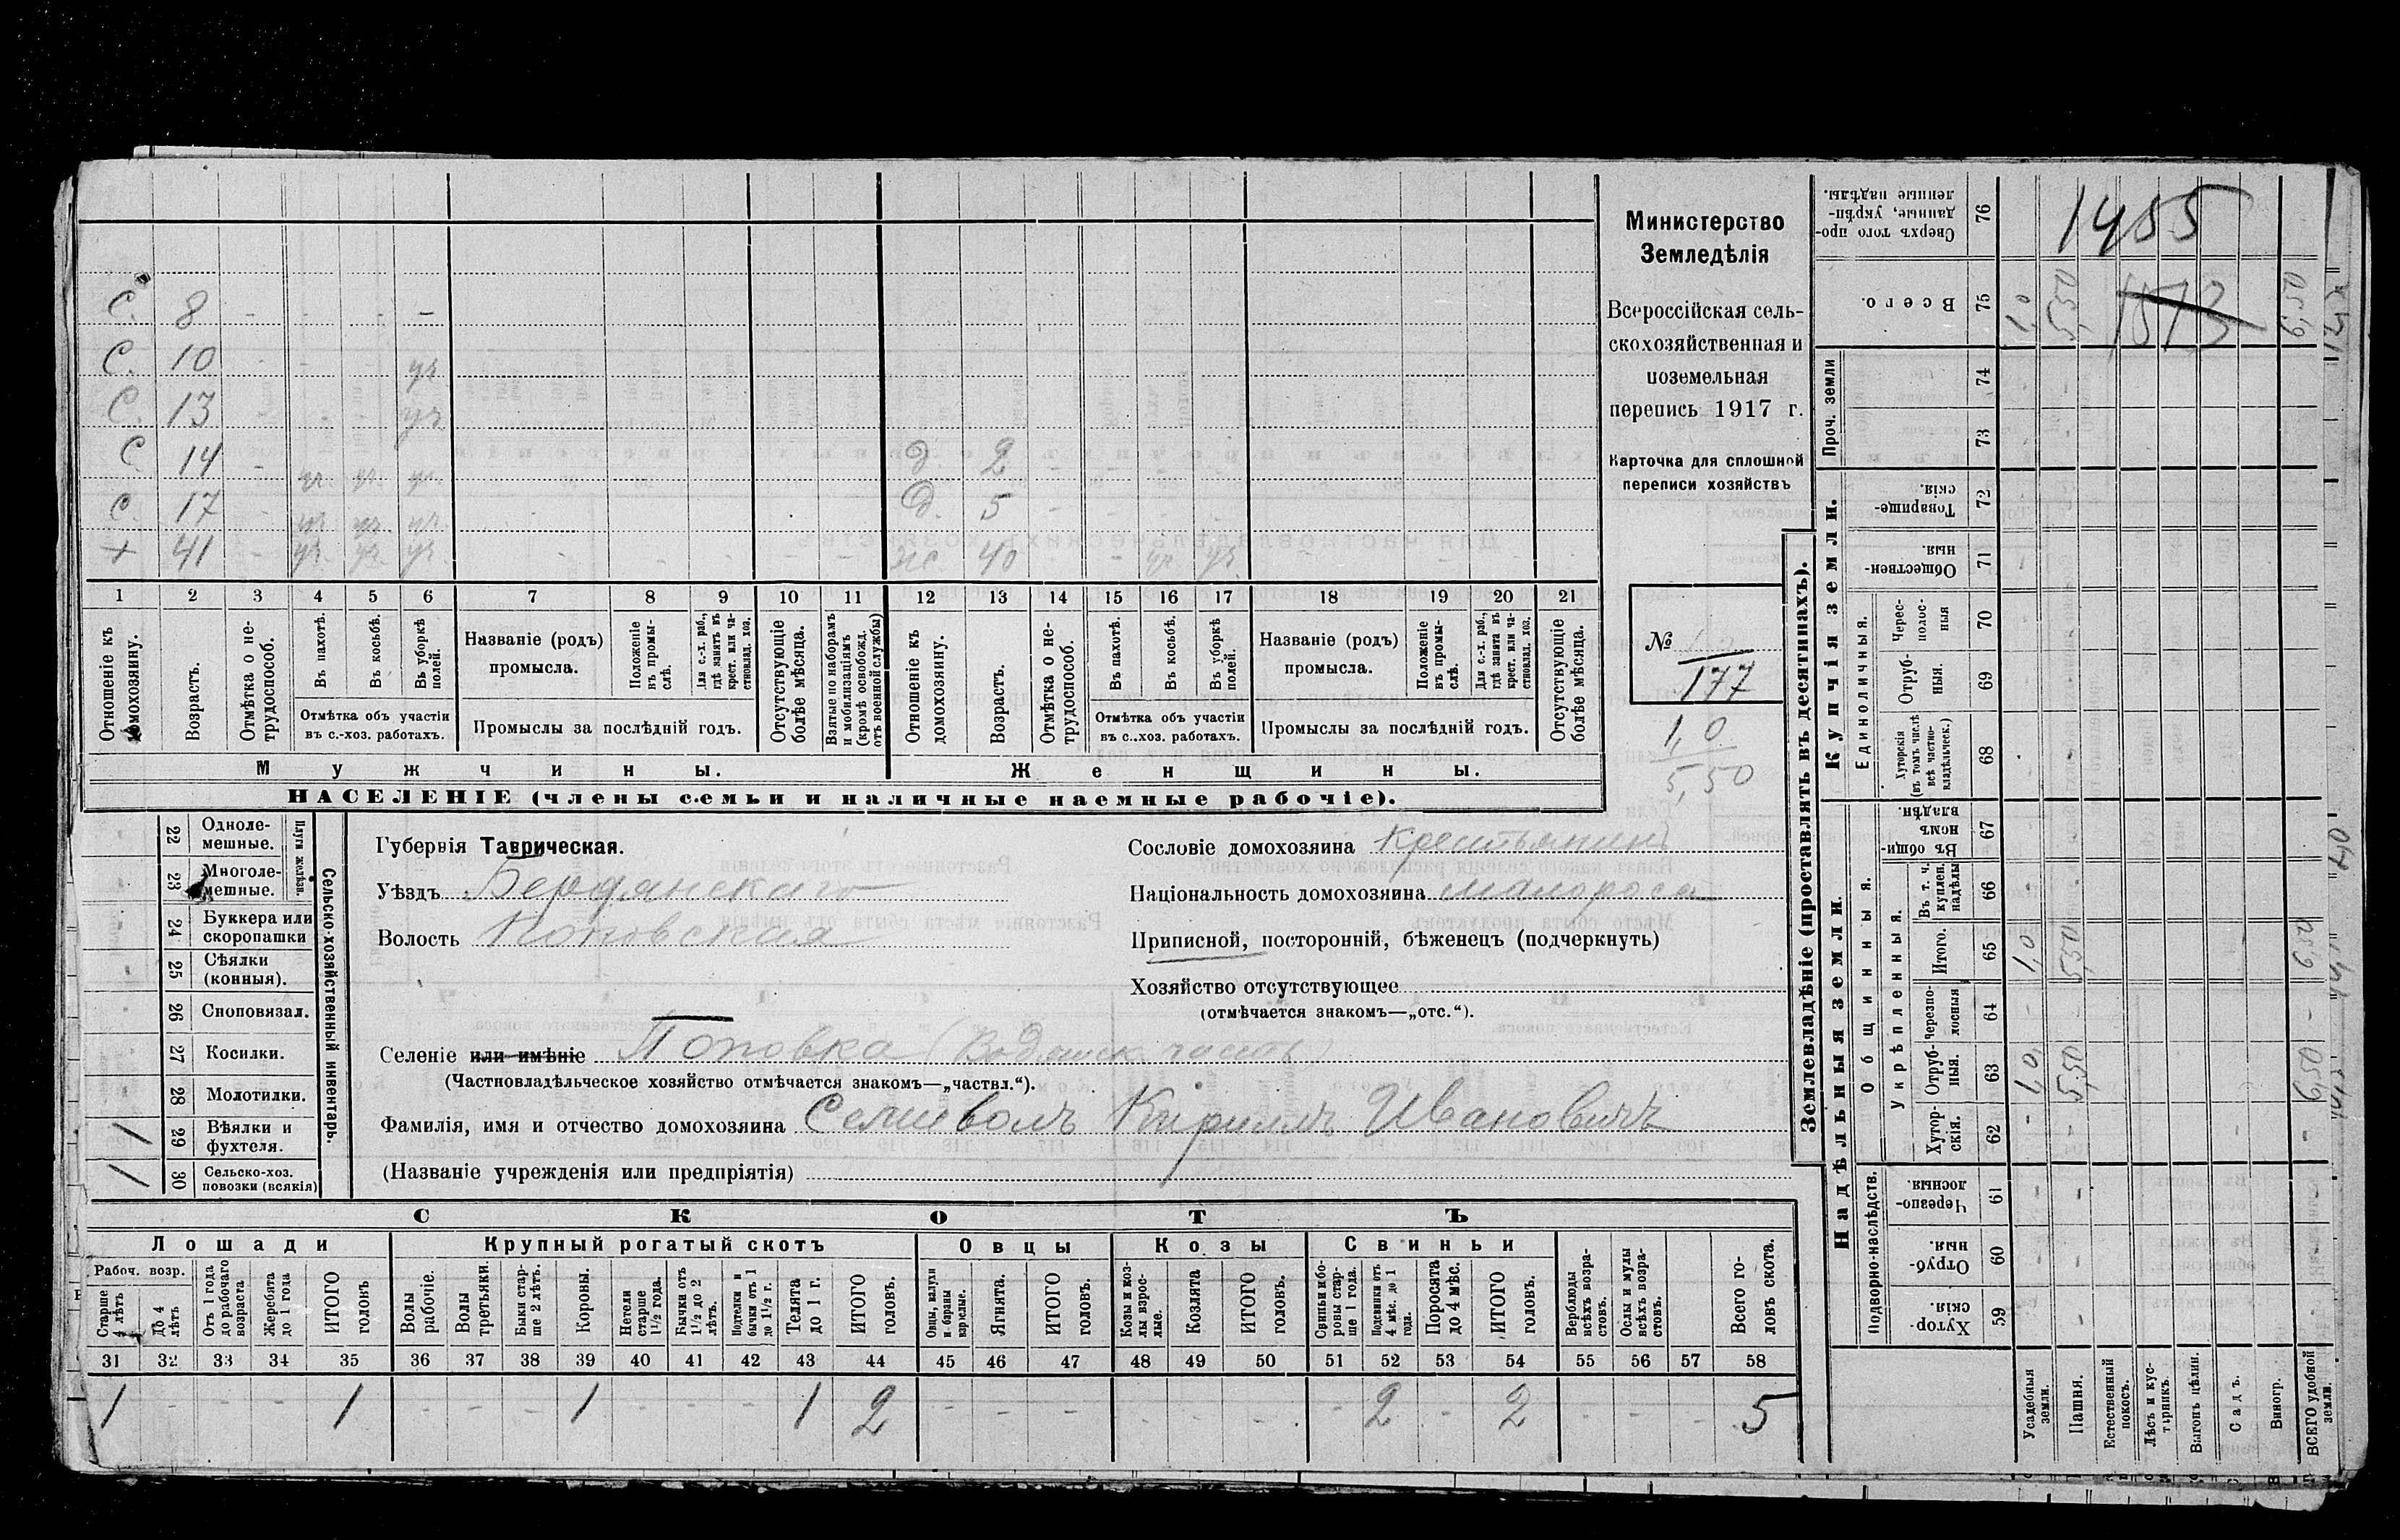 Министерство
Земледѣлія
Всероссійская сель-
скохозяйственная и
поземельная
перепись 1917 г.
Карточка для сплошной
переписи хозяйствъ
№
177
1,0
5,50
1455
1513
С. 8 - - - -
С. 10 - - уч.
С. 13 уч.
С. 14 - уч. уч. уч. Д. 2 - - - -
С. 17 уч. уч. уч. Д. 5 - - -
+ 41 - уч. уч. уч. - - - - - ж. 40 - - уч. уч. - -
1 2 3 4 5 6 7 8 9 10 11 12 13 14 15 16 17 18 19 20 21
Отношеніе къ домохозяину.
Возрастъ.
Отмѣтка о не-
трудоспособ.
Въ пахотѣ.
Въ косьбѣ.
Въ уборкѣ
полей.
Отмѣтка объ участіи
въ с.-хоз. работахъ.
Названіе (родъ)
промысла.
Положеніе
въ промы-
слѣ.
Для с.-х. раб.,
гдѣ занятъ въ
крест. или ча-
стновлад. хоз.
Промыслы за послѣдній годъ.
Отсутствующіе
болѣе мѣсяца.
Взятые по наборамъ
и мобилизаціямъ
(кромѣ освобожд.
отъ военной службы)
Отношеніе къ
домохозяину.
Возрастъ.
Отмѣтка о не-
трудоспособ.
Въ пахотѣ.
Въ косьбѣ.
Въ уборкѣ
полей.
Отмѣтка объ участіи
въ с.-хоз. работахъ.
Названіе (родъ)
промысла.
Положеніе
въ промы-
слѣ.
Для с.-х. раб.,
гдѣ занята въ
крест. или ча-
стновлад. хоз.
Промыслы за послѣдній годъ.
Отсутствующіе
болѣе мѣсяца.
Мужчины. Женщины.
НАСЕЛЕНІЕ (члены семьи и наличные наемные рабочіе).
Сельско-хозяйственный инвентарь.
Плуги желѣзн.
22 Одноле-
мешные.
23 Многоле-
мешные.
24 Буккера или
скоропашки
25 Сѣялки
(конныя).
26 Сноповязал.
27 Косилки.
28 Молотилки.
1 29 Вѣялки и
фухтеля.
1 30 Сельско-хоз.
повозки (всякія)
Губернія Таврическая.
Уѣздъ Бердянскаго
Волость Поповская
Сословіе домохозяина Крестьянинъ
Національность домохозяина малороссъ
Приписной, посторонній, бѣженецъ (подчеркнуть)
Хозяйство отсутствующее
(отмѣчается знакомъ—„отс.“).
Селеніе или имѣніе Поповка (Водянск. часть)
(Частновладѣльческое хозяйство отмѣчается знакомъ—„частвл.“).
Фамилія, имя и отчество домохозяина Семиволъ Кириллъ Ивановичъ
(Названіе учрежденія или предпріятія)
СКОТЪ
Лошади Крупный рогатый скотъ Овцы Козы Свиньи
Рабоч. возр.
Старше
4 лѣтъ
До 4
лѣтъ
Отъ 1 года
до рабочаго
возраста
Жеребята
до 1 года
ИТОГО
головъ
Волы
рабочіе.
Волы
третьяки.
Быки стар-
ше 2 лѣтъ.
Коровы.
Нетели
старше
1½ года.
Бычки отъ
1½ до 2
лѣтъ.
Подтелки и
бычки отъ 1
до 1½ г.
Телята
до 1 г.
ИТОГО
головъ.
Овцы, валухи
и бараны
взрослые.
Ягнята.
ИТОГО
головъ.
Козы и коз-
лы взрос-
лые.
Козлята
ИТОГО
головъ.
Свиньи и бо-
ровы стар-
ше 1 года.
Подсвинки отъ
4 мѣс. до 1
года.
Поросята
до 4 мѣс.
ИТОГО
головъ.
Верблюды
всѣхъ возра-
стовъ.
Ослы и мулы
всѣхъ возра-
стовъ.
Всего го-
ловъ скота.
31 32 33 34 35 36 37 38 39 40 41 42 43 44 45 46 47 48 49 50 51 52 53 54 55 56 57 58
1 - - - 1 - - - 1 - - - 1 2 - - - - - - - 2 - 2 - - - 5
Землевладѣніе (проставлять въ десятинахъ).
Купчія земли.
Надѣльныя земли.
Сверхъ того про-
данные, укрѣп-
ленные надѣлы. 76
Всего. 75 1,0 5,50 6,50
Проч. земли 74 73
Товарище-
скія. 72
Обществен-
ныя. 71
Единоличныя.
Черес-
полос-
ныя 70
Отруб-
ныя. 69
Хуторскія
(въ томъ числѣ
всѣ частно-
владѣльческ.) 68
Общинныя.
Въ общин-
номъ
владѣн. 67
Укрѣпленныя.
Въ т. ч.
куплен.
надѣлы 66
Итого. 65 1,0 5,50 6,50
Черезпо-
лосныя 64
Отруб-
ныя. 63 1,0 5,50 6,50
Хутор-
скія. 62
Подворно-наслѣдств.
Черезпо-
лосныя. 61
Отруб-
ныя. 60
Хутор-
скія. 59
Усадебныя
земли.
Пашня.
Естественный
покосъ.
Лѣсъ и кус-
тарникъ.
Выгонъ цѣлин.
Садъ.
Виногр.
ВСЕГО удобной
земли.